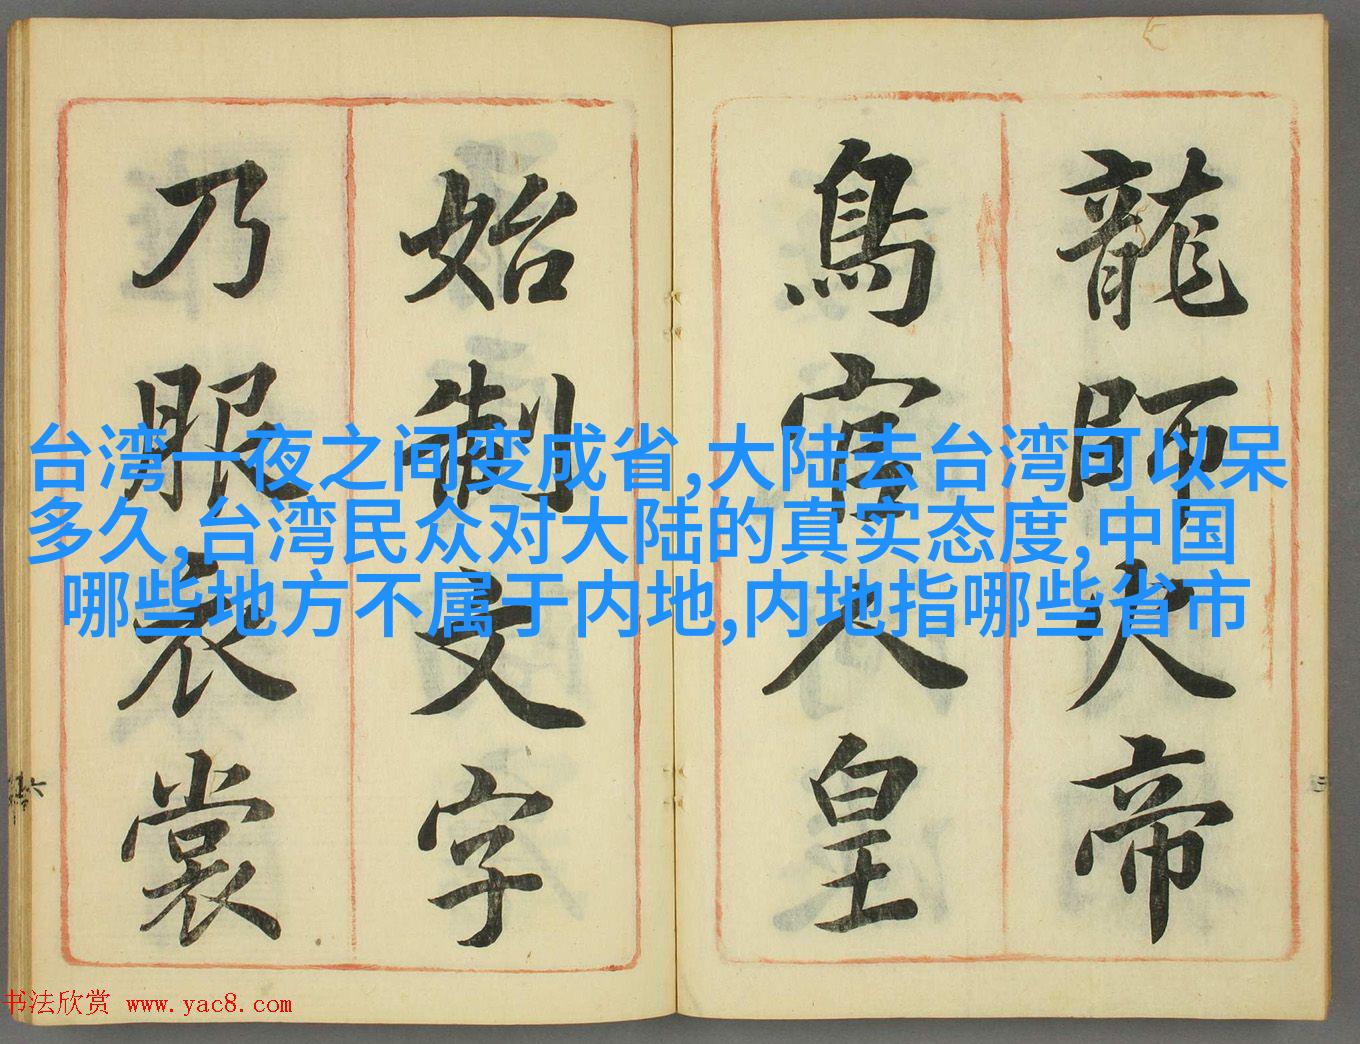 龍師火帝
鳥官人皇
始制文字
乃服衣裳
台湾一夜之间变成省,大陆去台湾可以呆
多久,台湾民众对大陆的真实态度,中国
哪些地方不属于内地,内地指哪些省市
书法欣赏 www.yac8.com